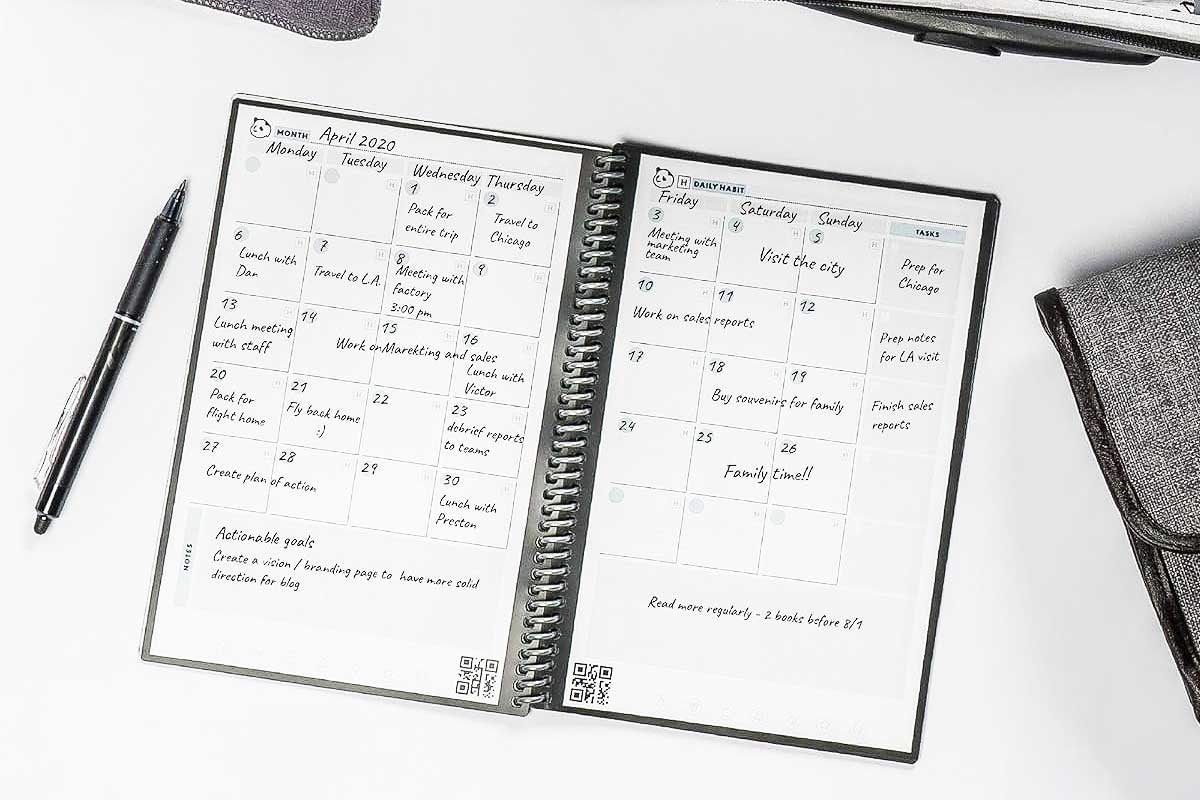 MONTH April 2020
Monday Tuesday Wednesday Thursday
1
Pack for
entire trip
2
Travel to
Chicago
6
Lunch with
Dan
7
Travel to L.A.
8
Meeting with
factory
3:00 pm
9
13
Lunch meeting
with staff
14
15
Work on Marekting and sales
16
Lunch with
Victor
20
Pack for
flight home
21
Fly back home
:)
22
23
debrief reports
to teams
27
28
Create plan of action
29
30
Lunch with
Preston
NOTES
Actionable goals
Create a vision / branding page to have more solid
direction for blog
H DAILY HABIT
Friday Saturday Sunday
TASKS
3
Meeting with
marketing
team
4
5
Visit the city
Prep for
Chicago
10
11
Work on sales reports
12
Prep notes
for LA visit
17
18
19
Buy souvenirs for family
Finish sales
reports
24
25
26
Family time!!
Read more regularly - 2 books before 8/1